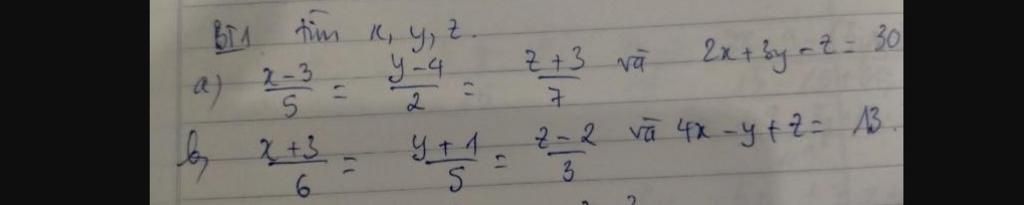 BT1 tìm x, y, z.
a) \frac{x-3}{5} = \frac{y-4}{2} = \frac{z+3}{7} và 2x+3y-z = 30
b, \frac{x+3}{6} = \frac{y+1}{5} = \frac{z-2}{3} và 4x-y+z = 13.